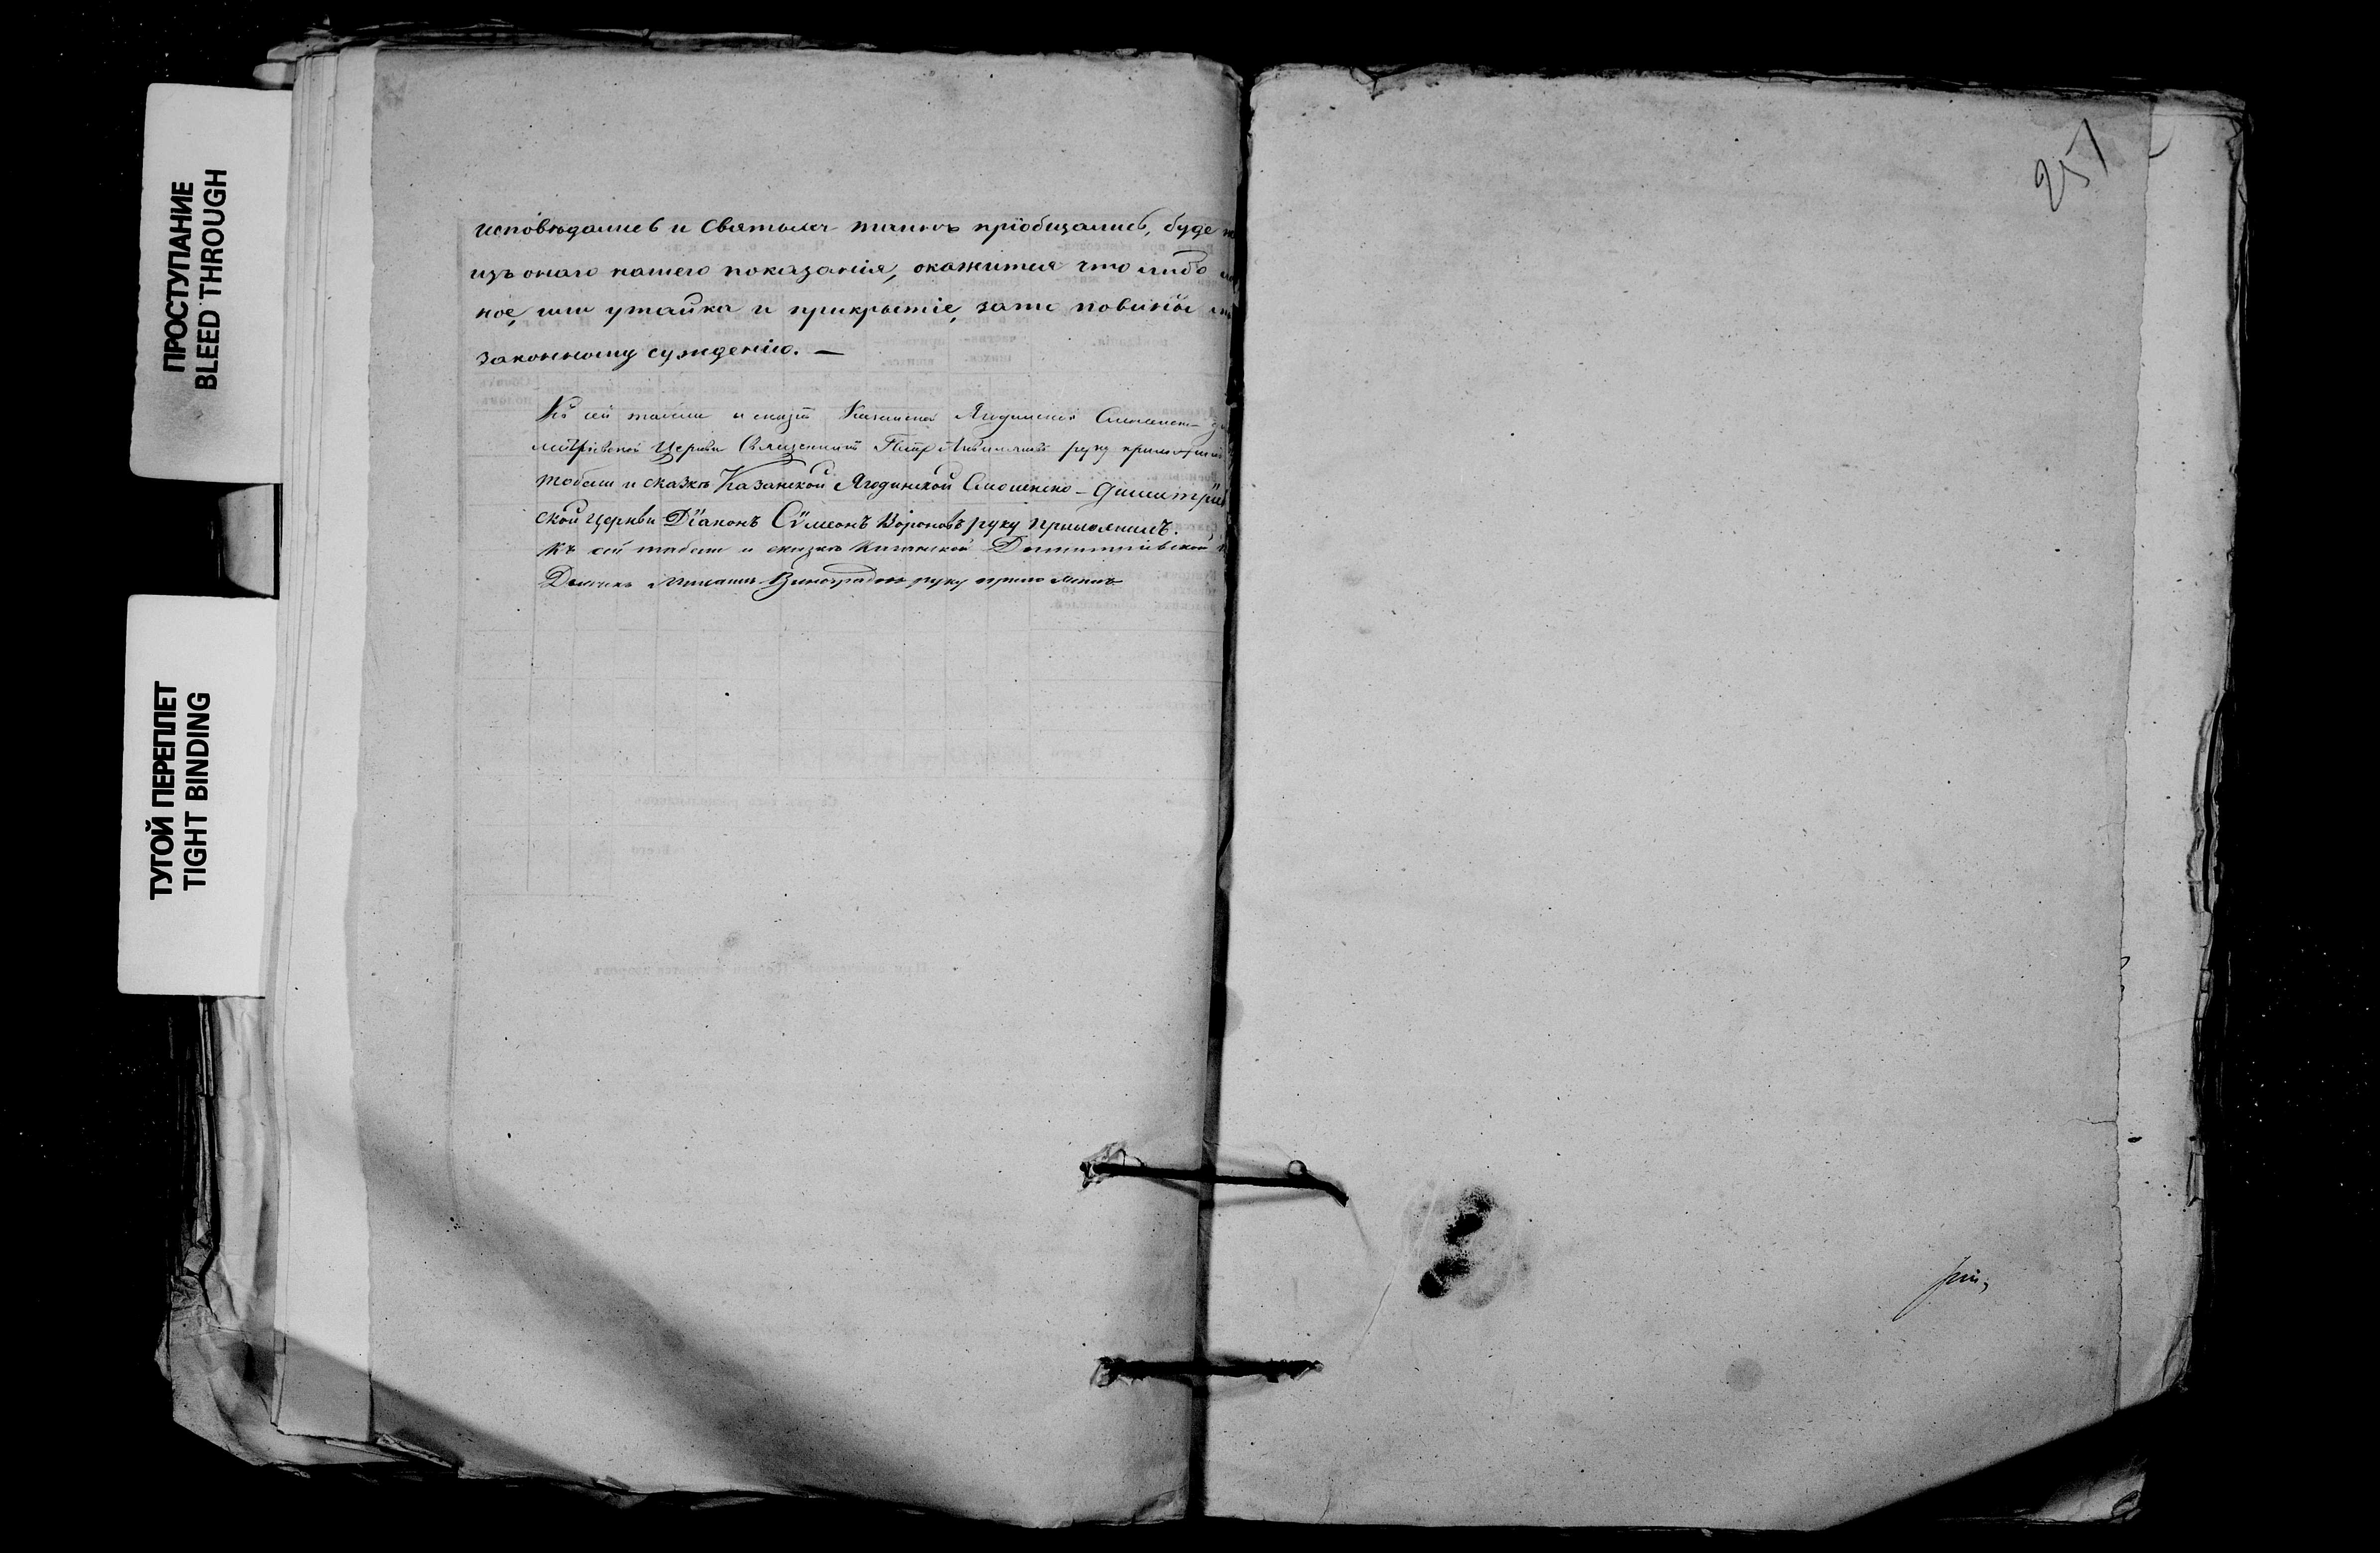 ПРОСТУПАНИЕ
BLEED THROUGH
ТУГОЙ ПЕРЕПЛЕТ
TIGHT BINDING
исповѣдались и Святыхъ таинъ пріобщались, буде
изъ онаго нашего показанія, окажится что либо
ное, или утайка и прикрытіе, зато повины
законному сужденію. —
Къ сей табели и сказкѣ Казанской Ягодинской Смоленско-
митріевской Церкви Священникъ Петръ руку приложилъ
табели и сказкѣ Казанской Ягодинской Смоленско-Димитріев
ской Церкви Діаконъ Сѵмеонъ Вороновъ руку приложилъ.
Къ сей табели и сказкѣ Казанской Димитріевской
Дьячекъ Михаилъ Виноградовъ руку приложилъ
257